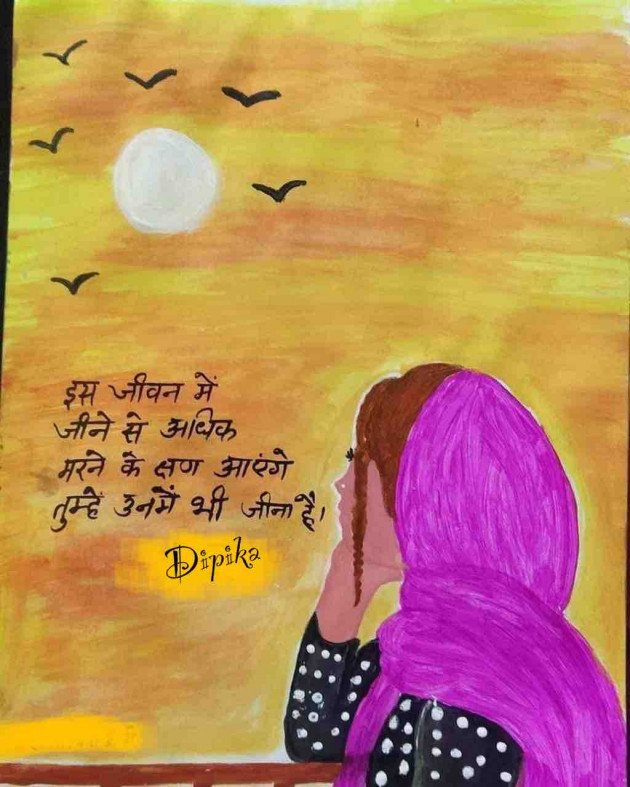 इस जीवन में
जीने से अधिक
मरने के क्षण आएंगे
तुम्हें उनमें भी जीना है।
Dipika